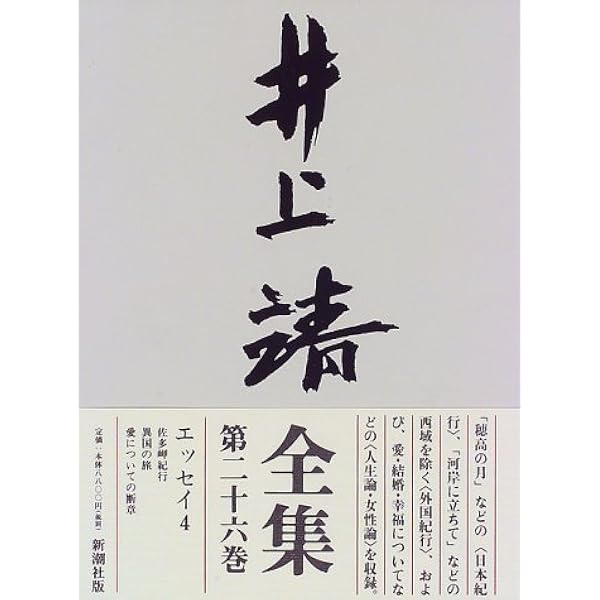 井上靖
全集
第二十六巻
「穂高の月」などの〈日本紀
行〉、「河岸に立ちて」などの
西域を除く〈外国紀行〉、およ
び、愛・結婚・幸福についてな
どの〈人生論・女性論〉を収録。
エッセイ4
佐多岬紀行
異国の旅
愛についての断章
定価:本体八八〇〇円(税別)
新潮社版